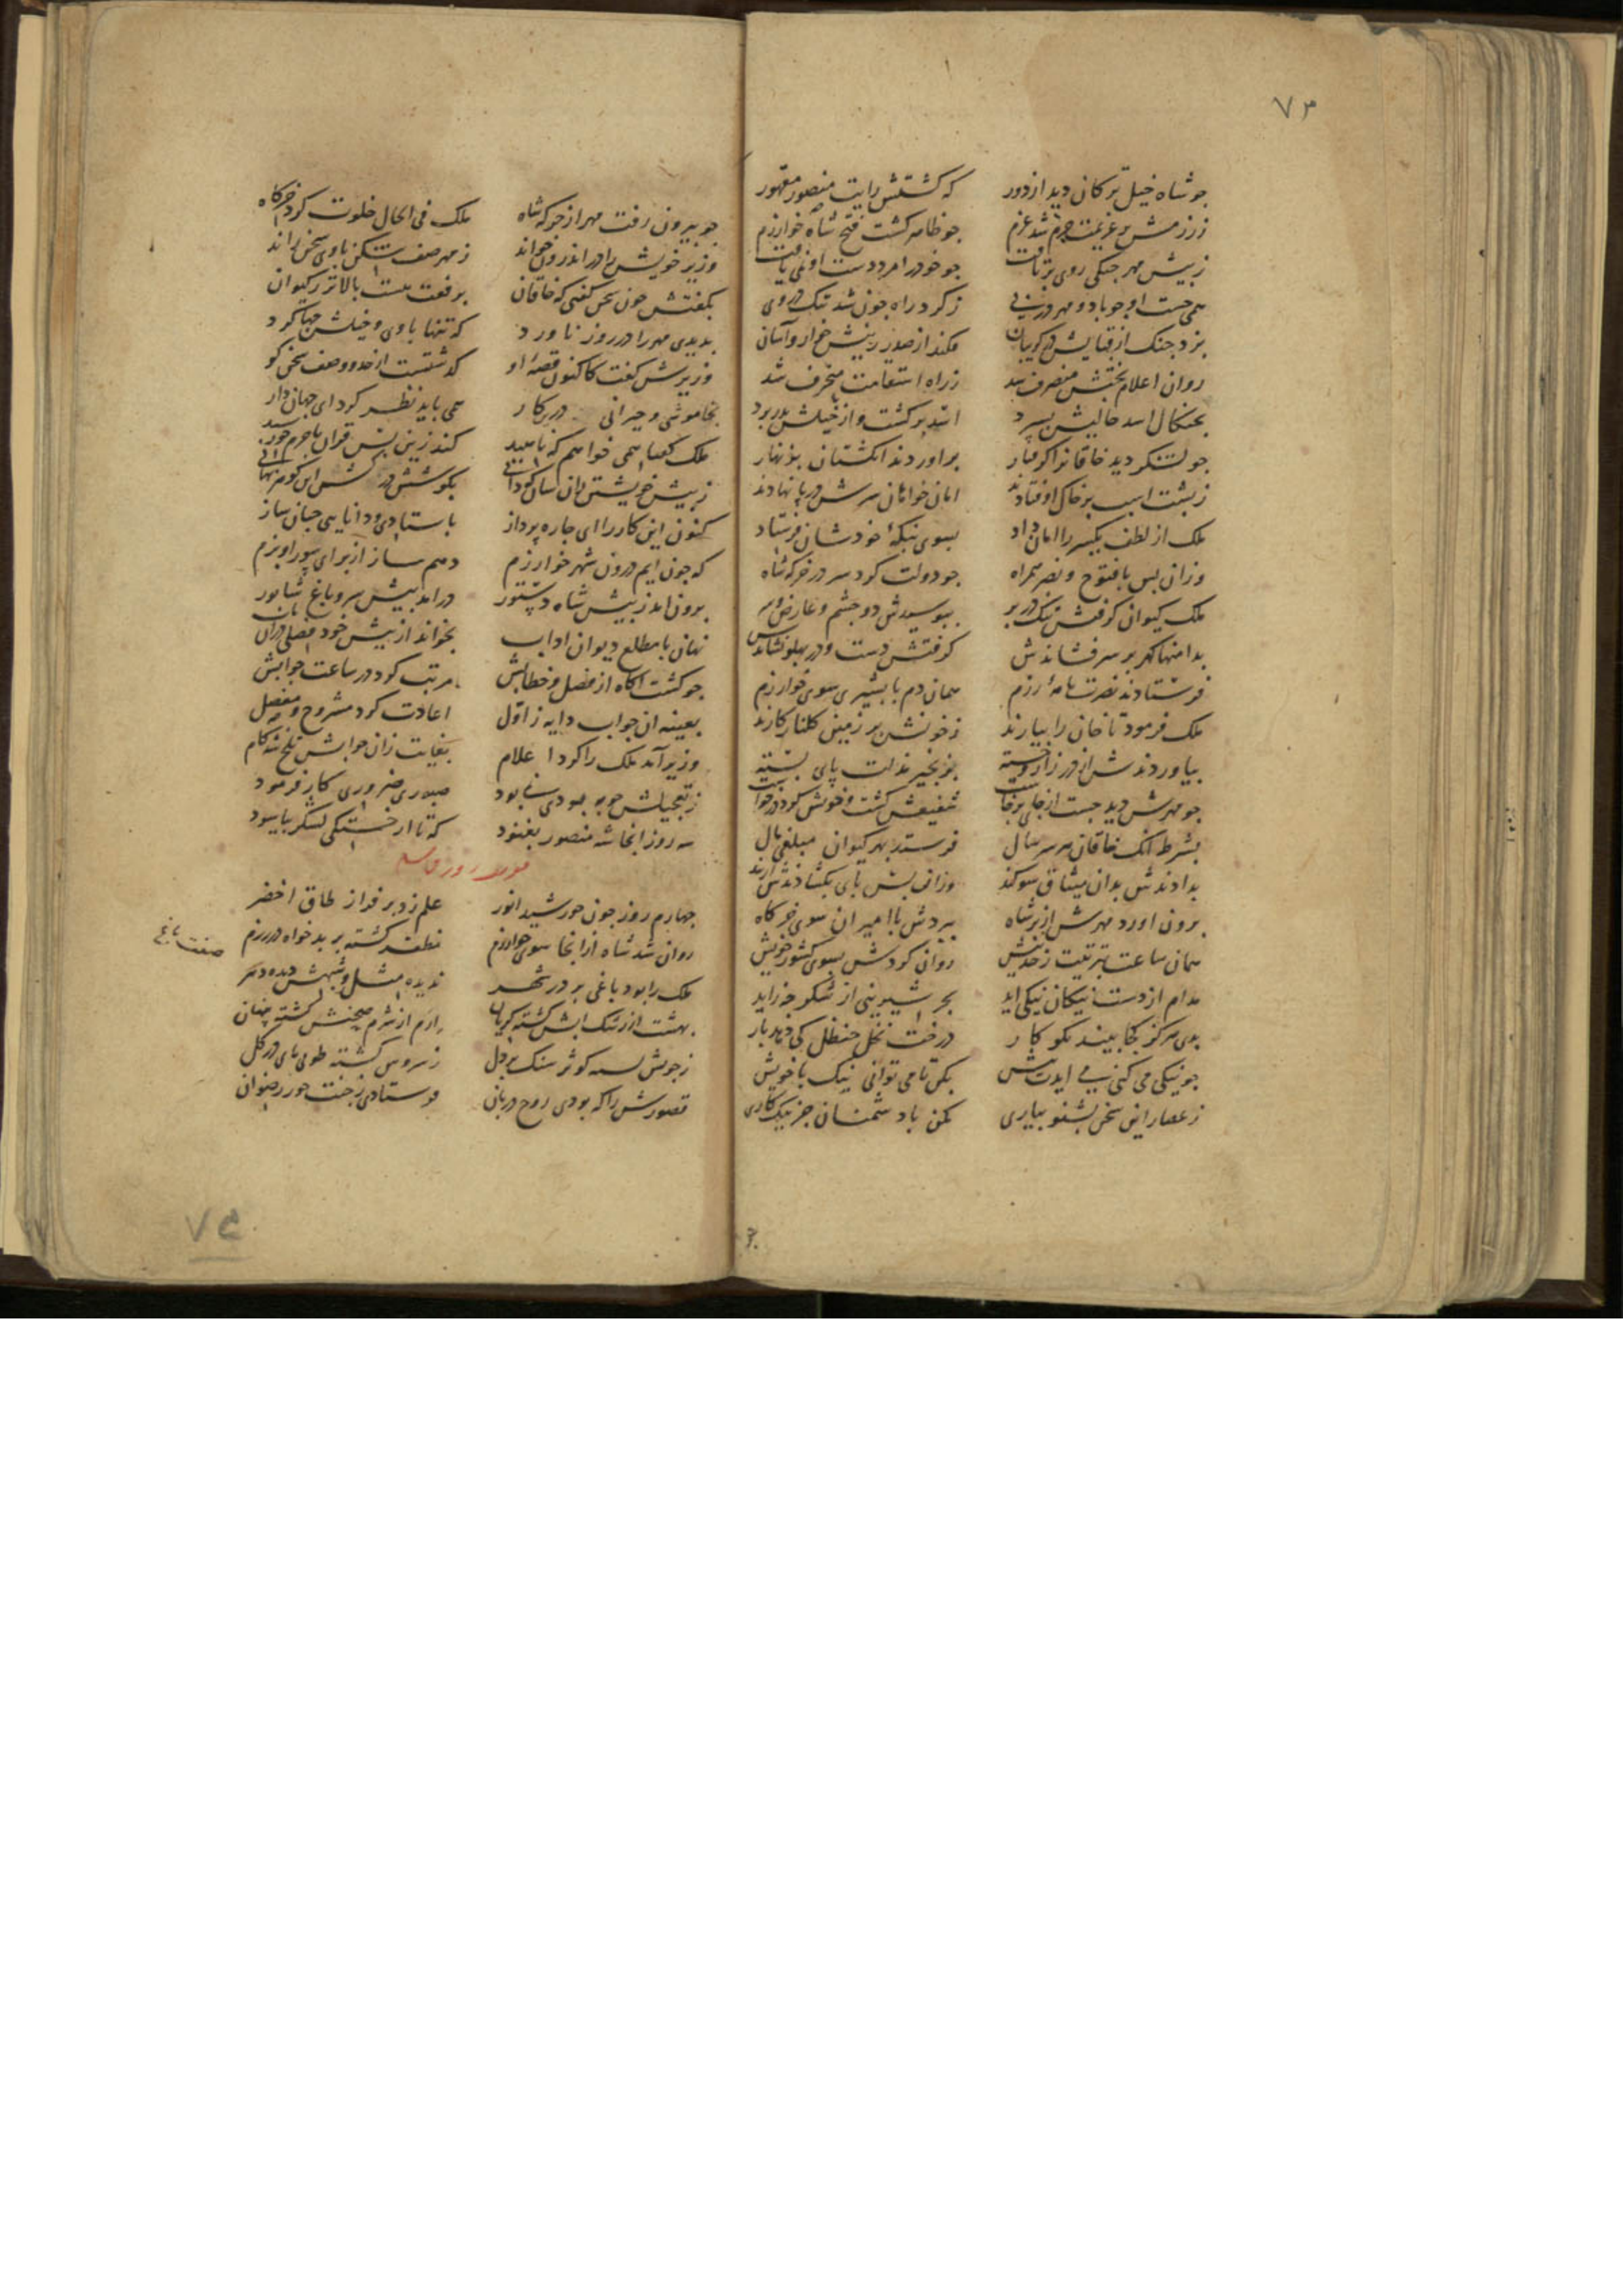 ۷۳
جو شاه خیل ترکان دید از دور
که کشتش رایت منصور مقهور
ز رزمش بر عزیمت جزم شد عزم
جو ظاهر کشت فتح شاه خوارزم
ز پیش مهر جنکی روی برتافت
جو خود را مرد دست او نمی یافت
همی جست او جو باد و مهر در پی
ز کرد راه جون شد تنک روی
بزد جنک از قفایش در کریبان
فکند از صدر زینش خوار و آسان
روان اعلام بختش منصرف شد
ز راه استقامت منحرف شد
بجنکال اسد حالیش بسپرد
اسد برکشت و از خیلش بدر برد
جو لشکر دید خاقانرا کرفتار
براوردند انکشتان بزنهار
ز پشت اسب بر خاک اوفتادند
امان خواهان سرش در پا نهادند
ملک از لطف یکسر را امان داد
بسوی بنکه خودشان فرستاد
وزان پس با فتوح و نصر همراه
جو دولت کرد سر در خرکه شاه
ملک کیوان کرفتش تنک در بر
ببوسیدش دو جشم و عارض و سر
بدامنها کهر بر سر فشاندش
کرفتش دست و در پهلو نشاندش
فرستادند نصرت نامهٔ رزم
همان دم با بشیری سوی خوارزم
ملک فرمود تا خان را بیارند
ز خونش بر زمین کلنار کارند
بیاوردندش از در زار و خسته
بزنجیر مذلت پای بسته
جو مهرش دید جست از جای برخاست
شفیعش کشت و خونش کرد درخواست
بشرط انک خاقان هر سر سال
فرستد بهر کیوان مبلغی مال
بدادندش بدان میثاق سوکند
وزان پس پای بکشادندش از بند
برون اورد مهرش از بر شاه
ببردش با امیران سوی خرکاه
همان ساعت بترتیب ز حد بیش
روان کردش بسوی کشور خویش
مدام از دست نیکان نیکی اید
بجز شیرینی از شکر جه زاید
بدی هرکز کجا بیند نکو کار
درخت نخل حنظل کی دهد بار
جو نیکی می کنی نیکی ایدت پیش
بکن تا می توانی نیک با خویش
ز عصار این سخن بشنو بیاری
مکن با دشمنان جز نیک کاری
جو بیرون رفت مهر از خرکه شاه
ملک فی الحال خلوت کرد خرکاه
وزیر خویش را در اندرون خواند
ز مهر صف شکن با وی سخن راند
بکفتش جون سخن کفتی که خاقان
برفعت هست بالاتر ز کیوان
بدیدی مهر را در روز ناورد
که تنها با وی و خیلش جها کرد
وزیرش کفت کاکنون قصهٔ او
کذشتست از حد و وصف سخن کو
بخاموشی و حیرانی درین کار
همی باید نظر کرد ای جهان دار
ملک کفتا همی خواهم که ناهید
کند زین پس قران با جرم خورشید
ز پیش خویشتن زان سان که دانی
بکوشش در کشش این کوهر نهانی
کنون این کار را ای جاره پرداز
باستادی و دانایی جنان ساز
که جون ایم درون شهر خوارزم
دهم ساز از برای پور او بزم
برون امد ز پیش شاه دستور
درامد پیش سرو باغ شاپور
نهان با مطلع دیوان اداب
بخواند از پیش خود فصلی دران باب
جو کشت اکاه از فصل و خطابش
مرتب کرد در ساعت جوابش
بعینه ان جواب دایه ز اول
اعادت کرد مشروح و مفصل
وزیر آمد ملک را کرد اعلام
بغایت زان جوابش تلخ شد کام
ز تعجیلش جو بهبودی نمی بود
صبوری ضروری کار فرمود
سه روز انجا شه منصور بغنود
که تا از خستکی لشکر بیاسود
جهارم روز جون خورشید انور
علم زد بر فراز طاق اخضر
روان شد شاه ازانجا سوی خوارزم
مظفر کشته بر بدخواه در رزم
صفت باغ
ملک را بود باغی بر در شهر
ندیده مثل و شبهش دیده دهر
بهشت از رشک ابش کشته کریان
ارم از شرم صحنش کشته پنهان
ز جویش بسته کوثر سنک بر دل
ز سروش کشته طوبی پای در کل
قصورش را که بودی روح دربان
فرستادی ز جنت حور رضوان
۷۴